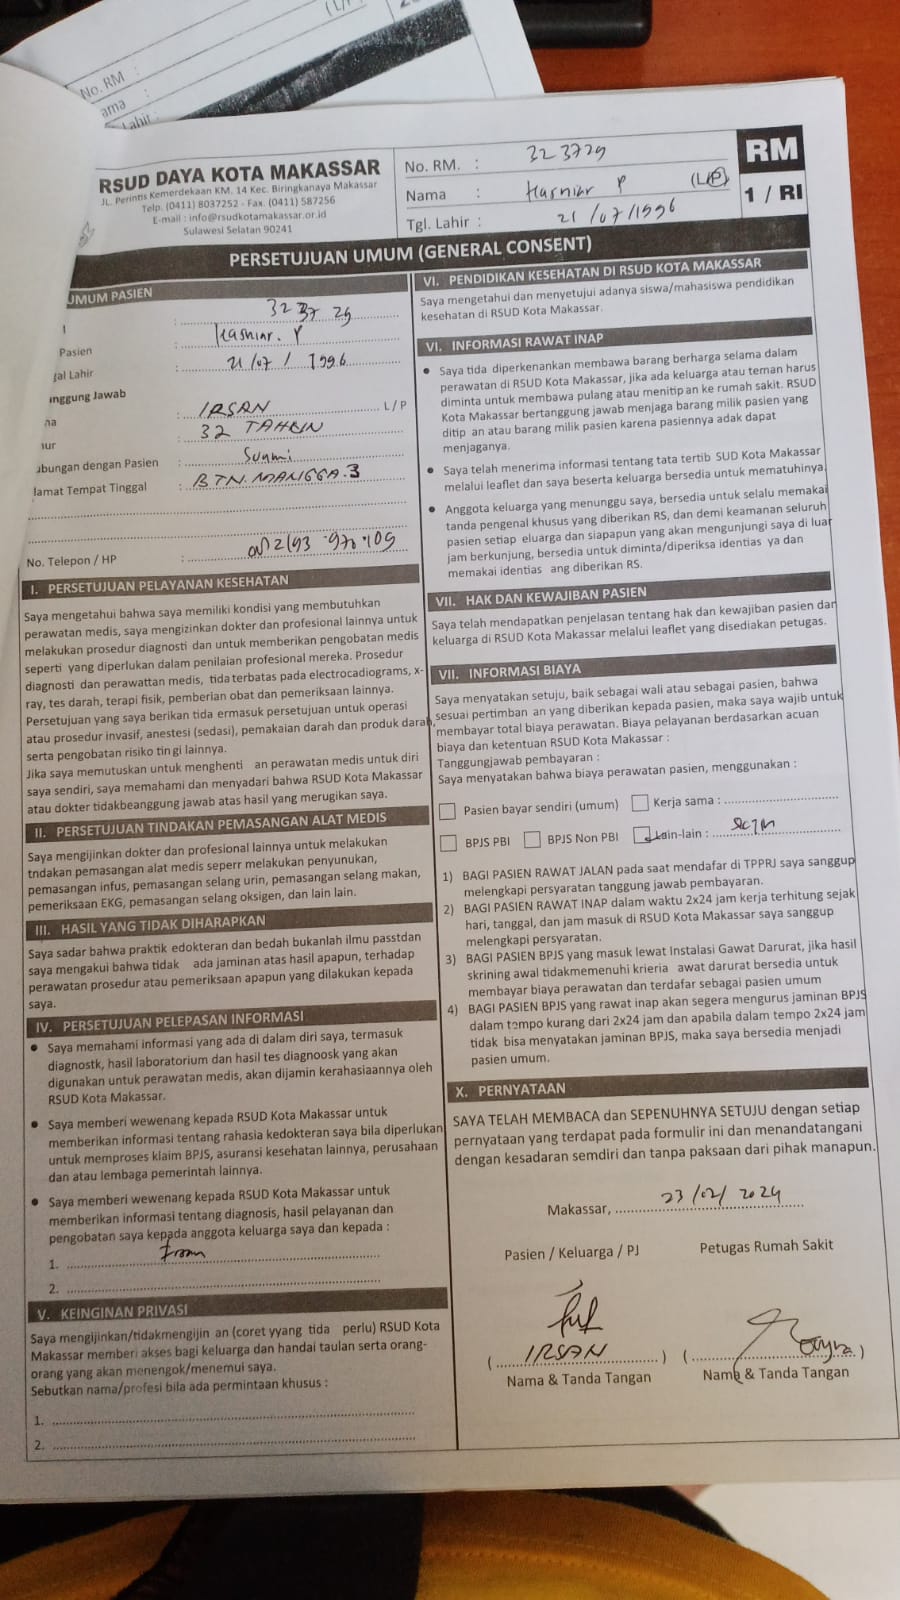 (L/P)
No. RM :
ama :
Lahir :
RSUD DAYA KOTA MAKASSAR
JL. Perintis Kemerdekaan KM. 14 Kec. Biringkanaya Makassar
Telp. (0411) 8037252 - Fax. (0411) 587256
E-mail : info@rsudkotamakassar.or.id
Sulawesi Selatan 90241
No. RM. : 323729
Nama : Hasniar P (L/P)
Tgl. Lahir : 21/07/1996
RM
1 / RI
PERSETUJUAN UMUM (GENERAL CONSENT)
UMUM PASIEN
: 323729
Pasien : Hasniar. P
gal Lahir : 21/07/1996
nggung Jawab
na : IRSAN L / P
ur : 32 TAHUN
ubungan dengan Pasien : Suami
lamat Tempat Tinggal : BTN. MANGGA.3
No. Telepon / HP :
I. PERSETUJUAN PELAYANAN KESEHATAN
Saya mengetahui bahwa saya memiliki kondisi yang membutuhkan
perawatan medis, saya mengizinkan dokter dan profesional lainnya untuk
melakukan prosedur diagnosti dan untuk memberikan pengobatan medis
seperti yang diperlukan dalam penilaian profesional mereka. Prosedur
diagnosti dan perawattan medis, tida terbatas pada electrocadiograms, x-
ray, tes darah, terapi fisik, pemberian obat dan pemeriksaan lainnya.
Persetujuan yang saya berikan tida ermasuk persetujuan untuk operasi
atau prosedur invasif, anestesi (sedasi), pemakaian darah dan produk darah,
serta pengobatan risiko tin gi lainnya.
Jika saya memutuskan untuk menghenti an perawatan medis untuk diri
saya sendiri, saya memahami dan menyadari bahwa RSUD Kota Makassar
atau dokter tidakbeanggung jawab atas hasil yang merugikan saya.
II. PERSETUJUAN TINDAKAN PEMASANGAN ALAT MEDIS
Saya mengijinkan dokter dan profesional lainnya untuk melakukan
tndakan pemasangan alat medis seperr melakukan penyunukan,
pemasangan infus, pemasangan selang urin, pemasangan selang makan,
pemeriksaan EKG, pemasangan selang oksigen, dan lain lain.
III. HASIL YANG TIDAK DIHARAPKAN
Saya sadar bahwa praktik edokteran dan bedah bukanlah ilmu passtdan
saya mengakui bahwa tidak ada jaminan atas hasil apapun, terhadap
perawatan prosedur atau pemeriksaan apapun yang dilakukan kepada
saya.
IV. PERSETUJUAN PELEPASAN INFORMASI
• Saya memahami informasi yang ada di dalam diri saya, termasuk
diagnostk, hasil laboratorium dan hasil tes diagnoosk yang akan
digunakan untuk perawatan medis, akan dijamin kerahasiaannya oleh
RSUD Kota Makassar.
• Saya memberi wewenang kepada RSUD Kota Makassar untuk
memberikan informasi tentang rahasia kedokteran saya bila diperlukan
untuk memproses klaim BPJS, asuransi kesehatan lainnya, perusahaan
dan atau lembaga pemerintah lainnya.
• Saya memberi wewenang kepada RSUD Kota Makassar untuk
memberikan informasi tentang diagnosis, hasil pelayanan dan
pengobatan saya kepada anggota keluarga saya dan kepada :
1.
2.
V. KEINGINAN PRIVASI
Saya mengijinkan/tidakmengijin an (coret yyang tida perlu) RSUD Kota
Makassar memberi akses bagi keluarga dan handai taulan serta orang-
orang yang akan menengok/menemui saya.
Sebutkan nama/profesi bila ada permintaan khusus :
1.
2.
VI. PENDIDIKAN KESEHATAN DI RSUD KOTA MAKASSAR
Saya mengetahui dan menyetujui adanya siswa/mahasiswa pendidikan
kesehatan di RSUD Kota Makassar.
VI. INFORMASI RAWAT INAP
• Saya tida diperkenankan membawa barang berharga selama dalam
perawatan di RSUD Kota Makassar, jika ada keluarga atau teman harus
diminta untuk membawa pulang atau menitip an ke rumah sakit. RSUD
Kota Makassar bertanggung jawab menjaga barang milik pasien yang
ditip an atau barang milik pasien karena pasiennya adak dapat
menjaganya.
• Saya telah menerima informasi tentang tata tertib SUD Kota Makassar
melalui leaflet dan saya beserta keluarga bersedia untuk mematuhinya.
• Anggota keluarga yang menunggu saya, bersedia untuk selalu memakai
tanda pengenal khusus yang diberikan RS, dan demi keamanan seluruh
pasien setiap eluarga dan siapapun yang akan mengunjungi saya di luar
jam berkunjung, bersedia untuk diminta/diperiksa identias ya dan
memakai identias ang diberikan RS.
VII. HAK DAN KEWAJIBAN PASIEN
Saya telah mendapatkan penjelasan tentang hak dan kewajiban pasien dan
keluarga di RSUD Kota Makassar melalui leaflet yang disediakan petugas.
VII. INFORMASI BIAYA
Saya menyatakan setuju, baik sebagai wali atau sebagai pasien, bahwa
sesuai pertimban an yang diberikan kepada pasien, maka saya wajib untuk
membayar total biaya perawatan. Biaya pelayanan berdasarkan acuan
biaya dan ketentuan RSUD Kota Makassar :
Tanggungjawab pembayaran :
Saya menyatakan bahwa biaya perawatan pasien, menggunakan :
Pasien bayar sendiri (umum) Kerja sama :
BPJS PBI BPJS Non PBI Lain-lain :
1) BAGI PASIEN RAWAT JALAN pada saat mendafar di TPPRJ saya sanggup
melengkapi persyaratan tanggung jawab pembayaran.
2) BAGI PASIEN RAWAT INAP dalam waktu 2x24 jam kerja terhitung sejak
hari, tanggal, dan jam masuk di RSUD Kota Makassar saya sanggup
melengkapi persyaratan.
3) BAGI PASIEN BPJS yang masuk lewat Instalasi Gawat Darurat, jika hasil
skrining awal tidakmemenuhi krieria awat darurat bersedia untuk
membayar biaya perawatan dan terdafar sebagai pasien umum
4) BAGI PASIEN BPJS yang rawat inap akan segera mengurus jaminan BPJS
dalam tempo kurang dari 2x24 jam dan apabila dalam tempo 2x24 jam
tidak bisa menyatakan jaminan BPJS, maka saya bersedia menjadi
pasien umum.
X. PERNYATAAN
SAYA TELAH MEMBACA dan SEPENUHNYA SETUJU dengan setiap
pernyataan yang terdapat pada formulir ini dan menandatangani
dengan kesadaran semdiri dan tanpa paksaan dari pihak manapun.
Makassar, 23/02/2024
Pasien / Keluarga / PJ Petugas Rumah Sakit
( IRSAN ) ( )
Nama & Tanda Tangan Nama & Tanda Tangan